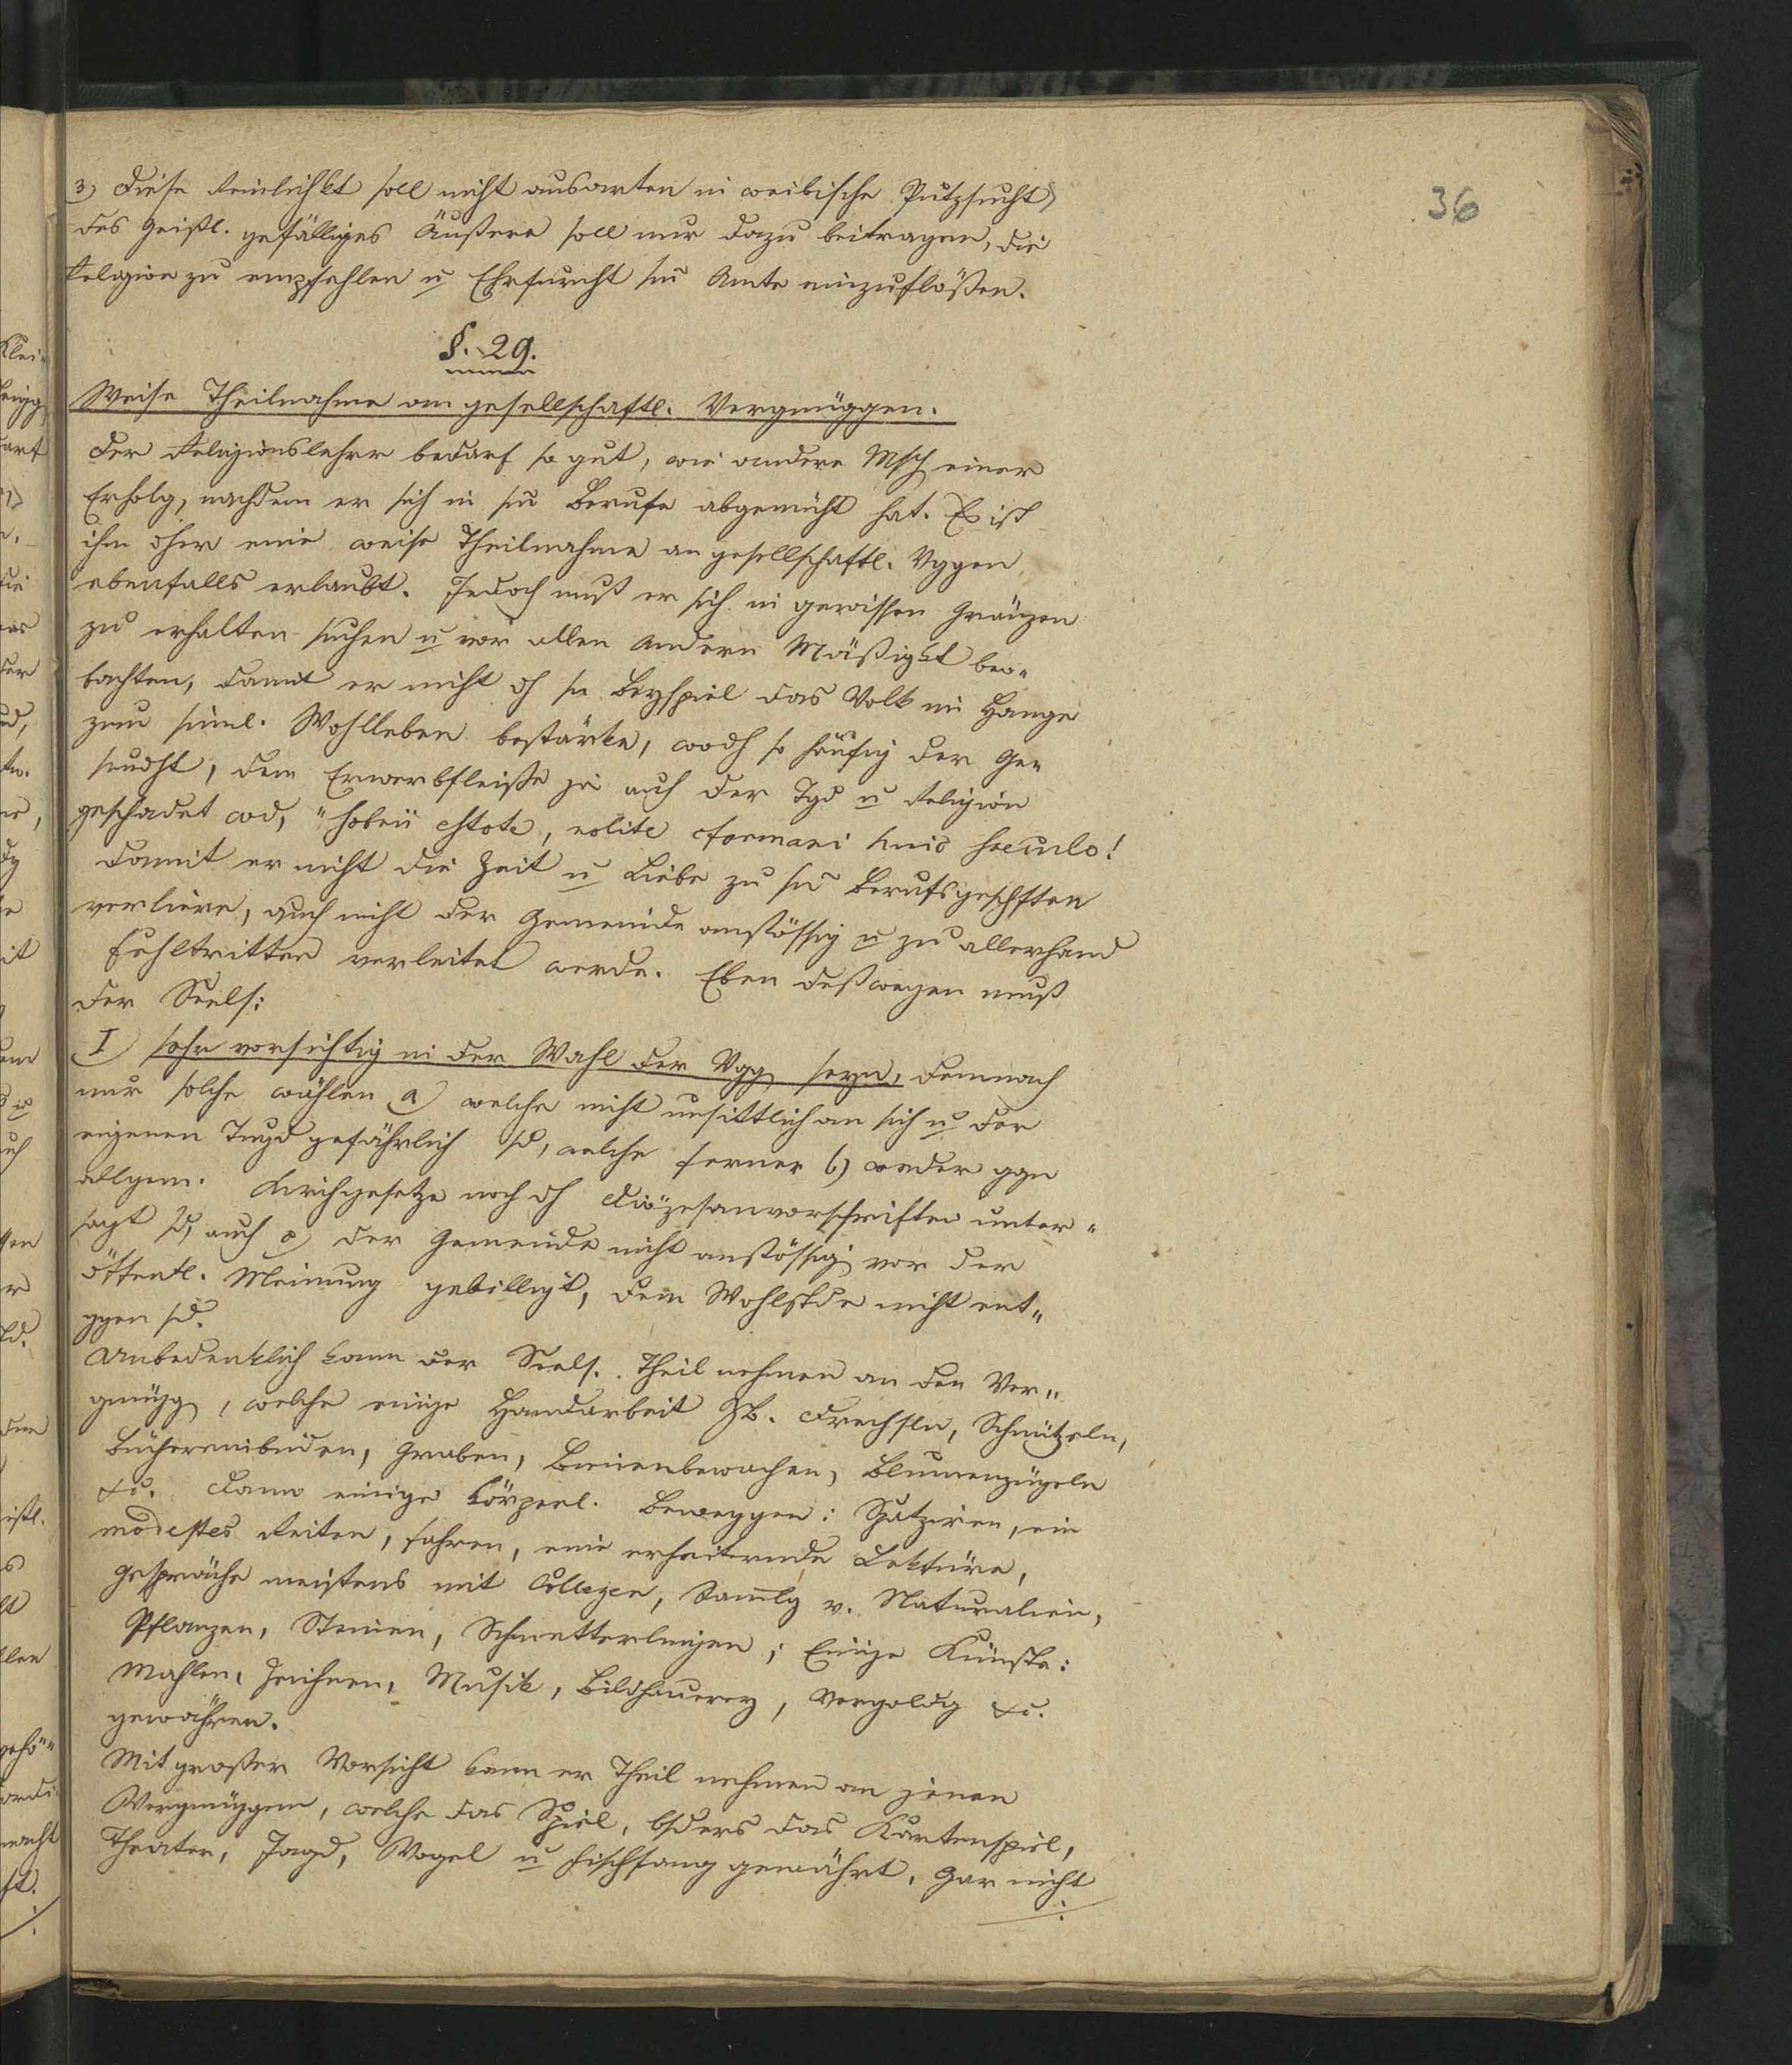 36
3) Diese Reinlichkt soll nicht ausarten in weibische Putzsucht,
des Geistl. gefälliges Äußere soll nur dazu beitragen, die
Religion zu empfehlen u Ehrfurcht sm Amte einzuflößen.
§. 29.
Weise Theilnahme am gesellschaftl. Vergnüggen.
Der Religionslehrer bedarf so gut, wie andere Msch einer
Erholg, nachdem er sich in sm Berufe abgemüht hat. Es ist
ihm dher eine weise Theilnahme an gesellschaftl. Vggen
ebenfalls erlaubt. Jedoch muß er sich in gewissen Gränzen
zu erhalten suchen u vor allen Andern Mäßigkt beo-
bachten, damit er nicht dh sn Beyspiel das Volk im Hange
zum sinnl. Wohlleben bestärke, wodh so häufig der Ge-
sundht, dem Erwerbfleiße ja auch der Tgd u Religion
geschadet wd, "sobrii estote, nolite cformari huic saeculo!
Damit er nicht die Zeit u Liebe zu sn Berufsgeschften
verliere, auch nicht der Gemeinde anstössig u zu allerhand
Fehltritten verleitet werde. Eben deßwegen muß
der Seels:
I) sehr vorsichtig in der Wahl der Vgg seyn, demnach
nur solche wählen a) welche nicht unsittlich an sich u der
eigenen Tugd gefährlich sd, welche ferner b) weder ggn
allgem. Kirchgesetze noch dh Diözesanvorschriften unter-
sagt sd, auch c) der Gemeinde nicht anstössig vor der
öffentl. Meinung gebilligt, dem Wohlstde nicht ent-
ggen sd.
Unbedenklich kann der Seels. Theil nehmen an den Ver-
gnügg, welche einige Handarbeit ZB. Drechseln, Schnützeln,
Büchereinbinden, Graben, Bienenbewachen, Blumenzügeln
etc. dann einige körperl. Beweggen: Spatziren, ein
modestes Reiten, fahren, eine erheiternde Lektüre,
Gespräche meistens mit Collegen, Samlg v. Naturalien,
Pflanzen, Steinen, Schmetterlingen; Einige Künste:
Mahlen, Zeichnen, Musik, Bildhauerey, Vergoldg etc.
gewähren.
Mit großer Vorsicht kann er Theil nehmen an jenen
Vergnüggen, welche das Spiel, bsders das Kartenspiel,
Theater, Jagd, Vogel u Fischfang gewährt. Gar nicht